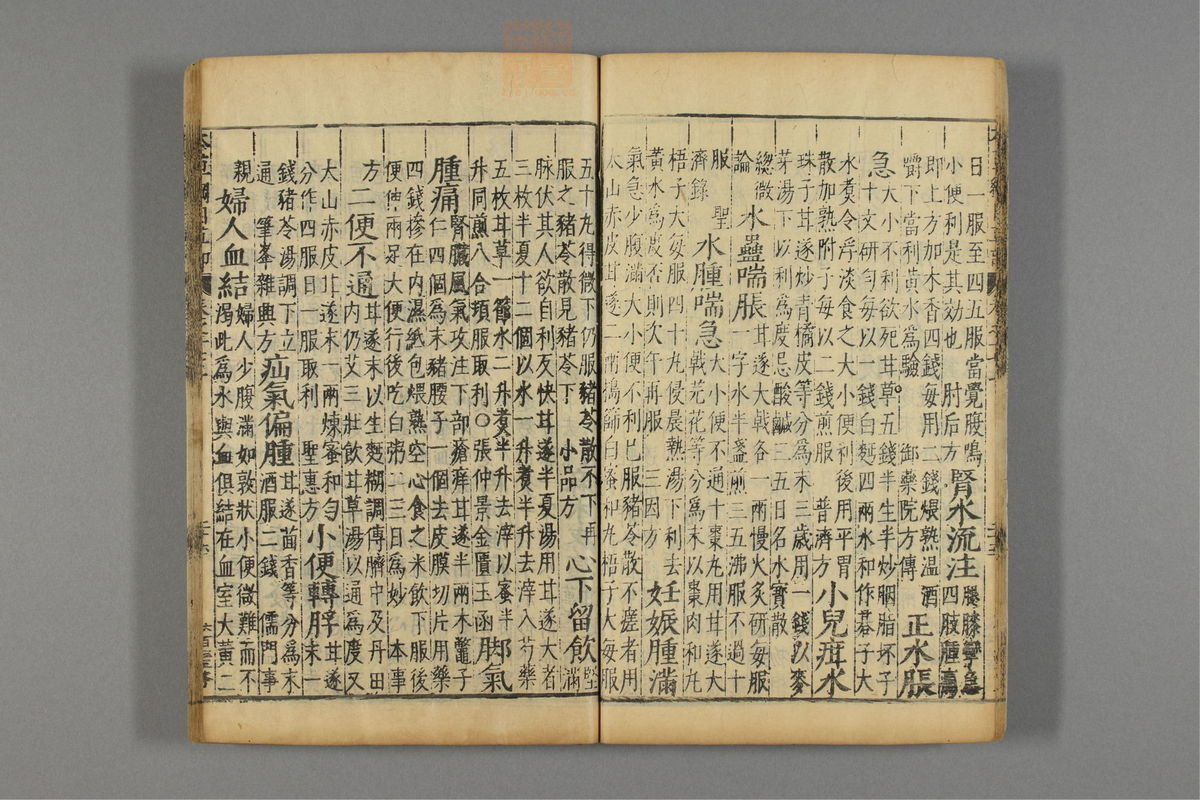 日一服至四五服當覺腹鳴
小便利是其効也 肘后方 腎水流注 腿膝攣急
四肢腫痛
即上方加木香四錢每用二錢煨熟溫酒
嚼下當利黃水為驗 御藥院方傳 正水脹
急 大小不利欲死甘草五錢半生半炒胭脂坏子
十文研勻每以一錢白麪四兩水和作棊子大
水煮令浮淡食之大小便利後用平胃
散加熟附子每以二錢煎服 普濟方 小兒疳水
珠子甘遂炒青橘皮等分為末三歲用一錢以麥
芽湯下以利為度忌酸鹹三五日名水寶散
總微
論 水蠱喘脹 甘遂大戟各一兩慢火炙研每服
一字水半盞煎三五沸服不過十
服 聖
濟錄 水腫喘急 大小便不通十棗丸用甘遂大
戟芫花等分為末以棗肉和丸
梧子大每服四十丸侵晨熱湯下利去
黃水為度否則次午再服 三因方 妊娠腫滿
氣急少腹滿大小便不利已服豬苓散不瘥者用
太山赤皮甘遂二兩搗篩白蜜和丸梧子大每服
五十丸得微下仍服豬苓散不下再
服之豬苓散見豬苓下 小品方 心下留飲 堅滿
脉伏其人欲自利反快甘遂半夏湯用甘遂大者
三枚半夏十二個以水一升煮半升去滓入芍藥
五枚甘草一節水二升煮半升去滓以蜜半
升同煎八合頓服取利○張仲景金匱玉函 脚氣
腫痛 腎臟風氣攻注下部瘡痒甘遂半兩木鱉子
仁四個為末豬腰子一個去皮膜切片用藥
四錢摻在內濕紙包煨熟空心食之米飲下服後
便伸兩足大便行後吃白粥二三日為妙 本事
方 二便不通 甘遂末以生麪糊調傅臍中及丹田
內仍艾三壯飲甘草湯以通為度又
太山赤皮甘遂末一兩煉蜜和勻
分作四服日一服取利 聖惠方 小便轉脬 甘遂
末一
錢豬苓湯調下立
通 筆峯雜興方 疝氣偏腫 甘遂茴香等分為末
酒服二錢 儒門事
親 婦人血結 婦人少腹滿如敦狀小便微難而不
渴此爲水與血俱結在血室大黃二